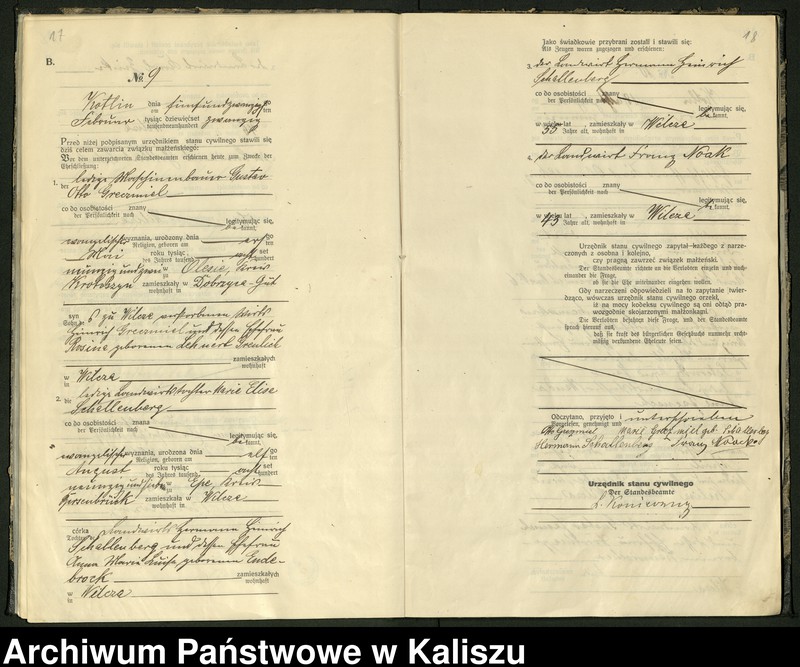 17
B.
№ 9
Kotlin dnia am fünfundzwanzig go ten
Februar tysiąc dziewięćset tausendneunhundert zwanzig
Przed niżej podpisanym urzędnikiem stanu cywilnego stawili się
dziś celem zawarcia związku małżeńskiego:
Vor dem unterzeichneten Standesbeamten erschienen heute zum Zwecke der
Eheschließung:
1. der ledige Maschinenbauer Gustav
Otto Grezmiel
co do osobistości znany
der Persönlichkeit nach
legitymując się,
be kannt,
evangelischer wyznania, urodzony dnia go
Religion, geboren am ten
Mai roku tysiąc acht set
des Jahres tausend hundert
neunzig und w zu Olesie, Kreis
Krotoschin zamieszkały w Dobrzyca-Gut
wohnhaft in
syn
Sohn des zu Wilcza verstorbenen Wirts
Heinrich Grezmiel und dessen Ehefrau
Rosine, geborenen
zamieszkałych
wohnhaft
w
in Wilcza
2. die ledige Landwirtstochter Marie Elise
Schallenberg
co do osobistości znana
der Persönlichkeit nach
legitymując się,
be kannt,
evangelischer wyznania, urodzona dnia elf go
Religion, geboren am ten
August roku tysiąc acht set
des Jahres tausend hundert
neunzig und w zu Epe, Kreis
Bersenbrück zamieszkała w Wilcza
wohnhaft in
córka
Tochter des Landwirts Hermann Heinrich
Schallenberg und dessen Ehefrau
Anna Maria Luise, geborenen Ende-
brock
zamieszkałych
wohnhaft
w
in Wilcza
18
Jako świadkowie przybrani zostali i stawili się:
Als Zeugen waren zugezogen und erschienen:
3. der Landwirt Hermann Heinrich
Schallenberg
co do osobistości znany
der Persönlichkeit nach
legitymując się,
be kannt,
w wieku lat 55, zamieszkały w Wilcza
Jahre alt, wohnhaft in
4. der Landwirt Franz Noak
co do osobistości znany
der Persönlichkeit nach
legitymując się,
be kannt,
w wieku lat 45, zamieszkały w Wilcza
Jahre alt, wohnhaft in
Urzędnik stanu cywilnego zapytał każdego z narze-
czonych z osobna i kolejno,
czy pragną zawrzeć związek małżeński.
Der Standesbeamte richtete an die Verlobten einzeln und nach-
einander die Frage,
ob sie die Ehe miteinander eingehen wollen.
Gdy narzeczeni odpowiedzieli na to zapytanie twier-
dząco, wówczas urzędnik stanu cywilnego orzekł,
iż na mocy kodeksu cywilnego są oni odtąd pra-
wozgodnie skojarzonymi małżonkami.
Die Verlobten bejahten diese Frage, und der Standesbeamte
sprach hierauf aus,
daß sie kraft des bürgerlichen Gesetzbuchs nunmehr recht-
mäßig verbundene Eheleute seien.
Odczytano, przyjęto i unterschrieben
Vorgelesen, genehmigt und
Otto Grezmiel Marie Grezmiel geb. Schallenberg
Hermann Schallenberg Franz Noack
Urzędnik stanu cywilnego
Der Standesbeamte
Archiwum Państwowe w Kaliszu